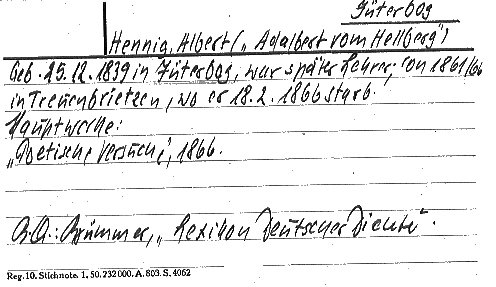 Jüterbog
Hennig, Albert („Adalbert vom Hellberg")
Geb. 25.12.1839 in Jüterbog, war später Lehrer, von 1861/66
in Treuenbrietzen, wo er 18.2.1866 starb.
Hauptwerke:
„Poetische Versuche", 1866.
B.Q.: Brümmer, „Lexikon Deutscher Dichter".
Reg. 10. Stichnote. 1. 50. 232 000. A. 803. S. 4062